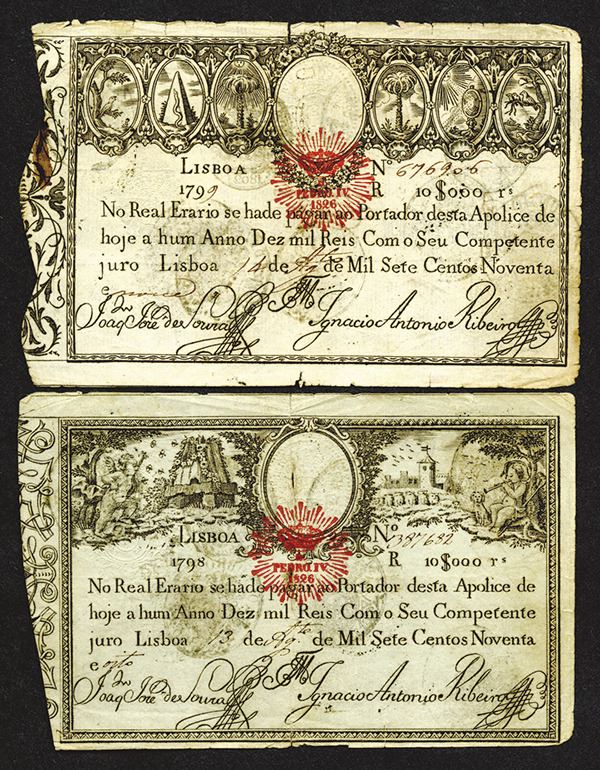 LISBOA Nº 676906
1799 PEDRO IV. R 10$000 rs
1826
No Real Erario se hade pagar ao Portador desta Apolice de
hoje a hum Anno Dez mil Reis Com o Seu Competente
juro Lisboa 14 de de Mil Sete Centos Noventa
e nove
Joaqm José de Souza Ignacio Antonio Ribeiro
LISBOA Nº 387682
1798 PEDRO IV. R 10$000 rs
1826
No Real Erario se hade pagar ao Portador desta Apolice de
hoje a hum Anno Dez mil Reis Com o Seu Competente
juro Lisboa 13 de Agto de Mil Sete Centos Noventa
e oyto
Joaqm José de Souza Ignacio Antonio Ribeiro